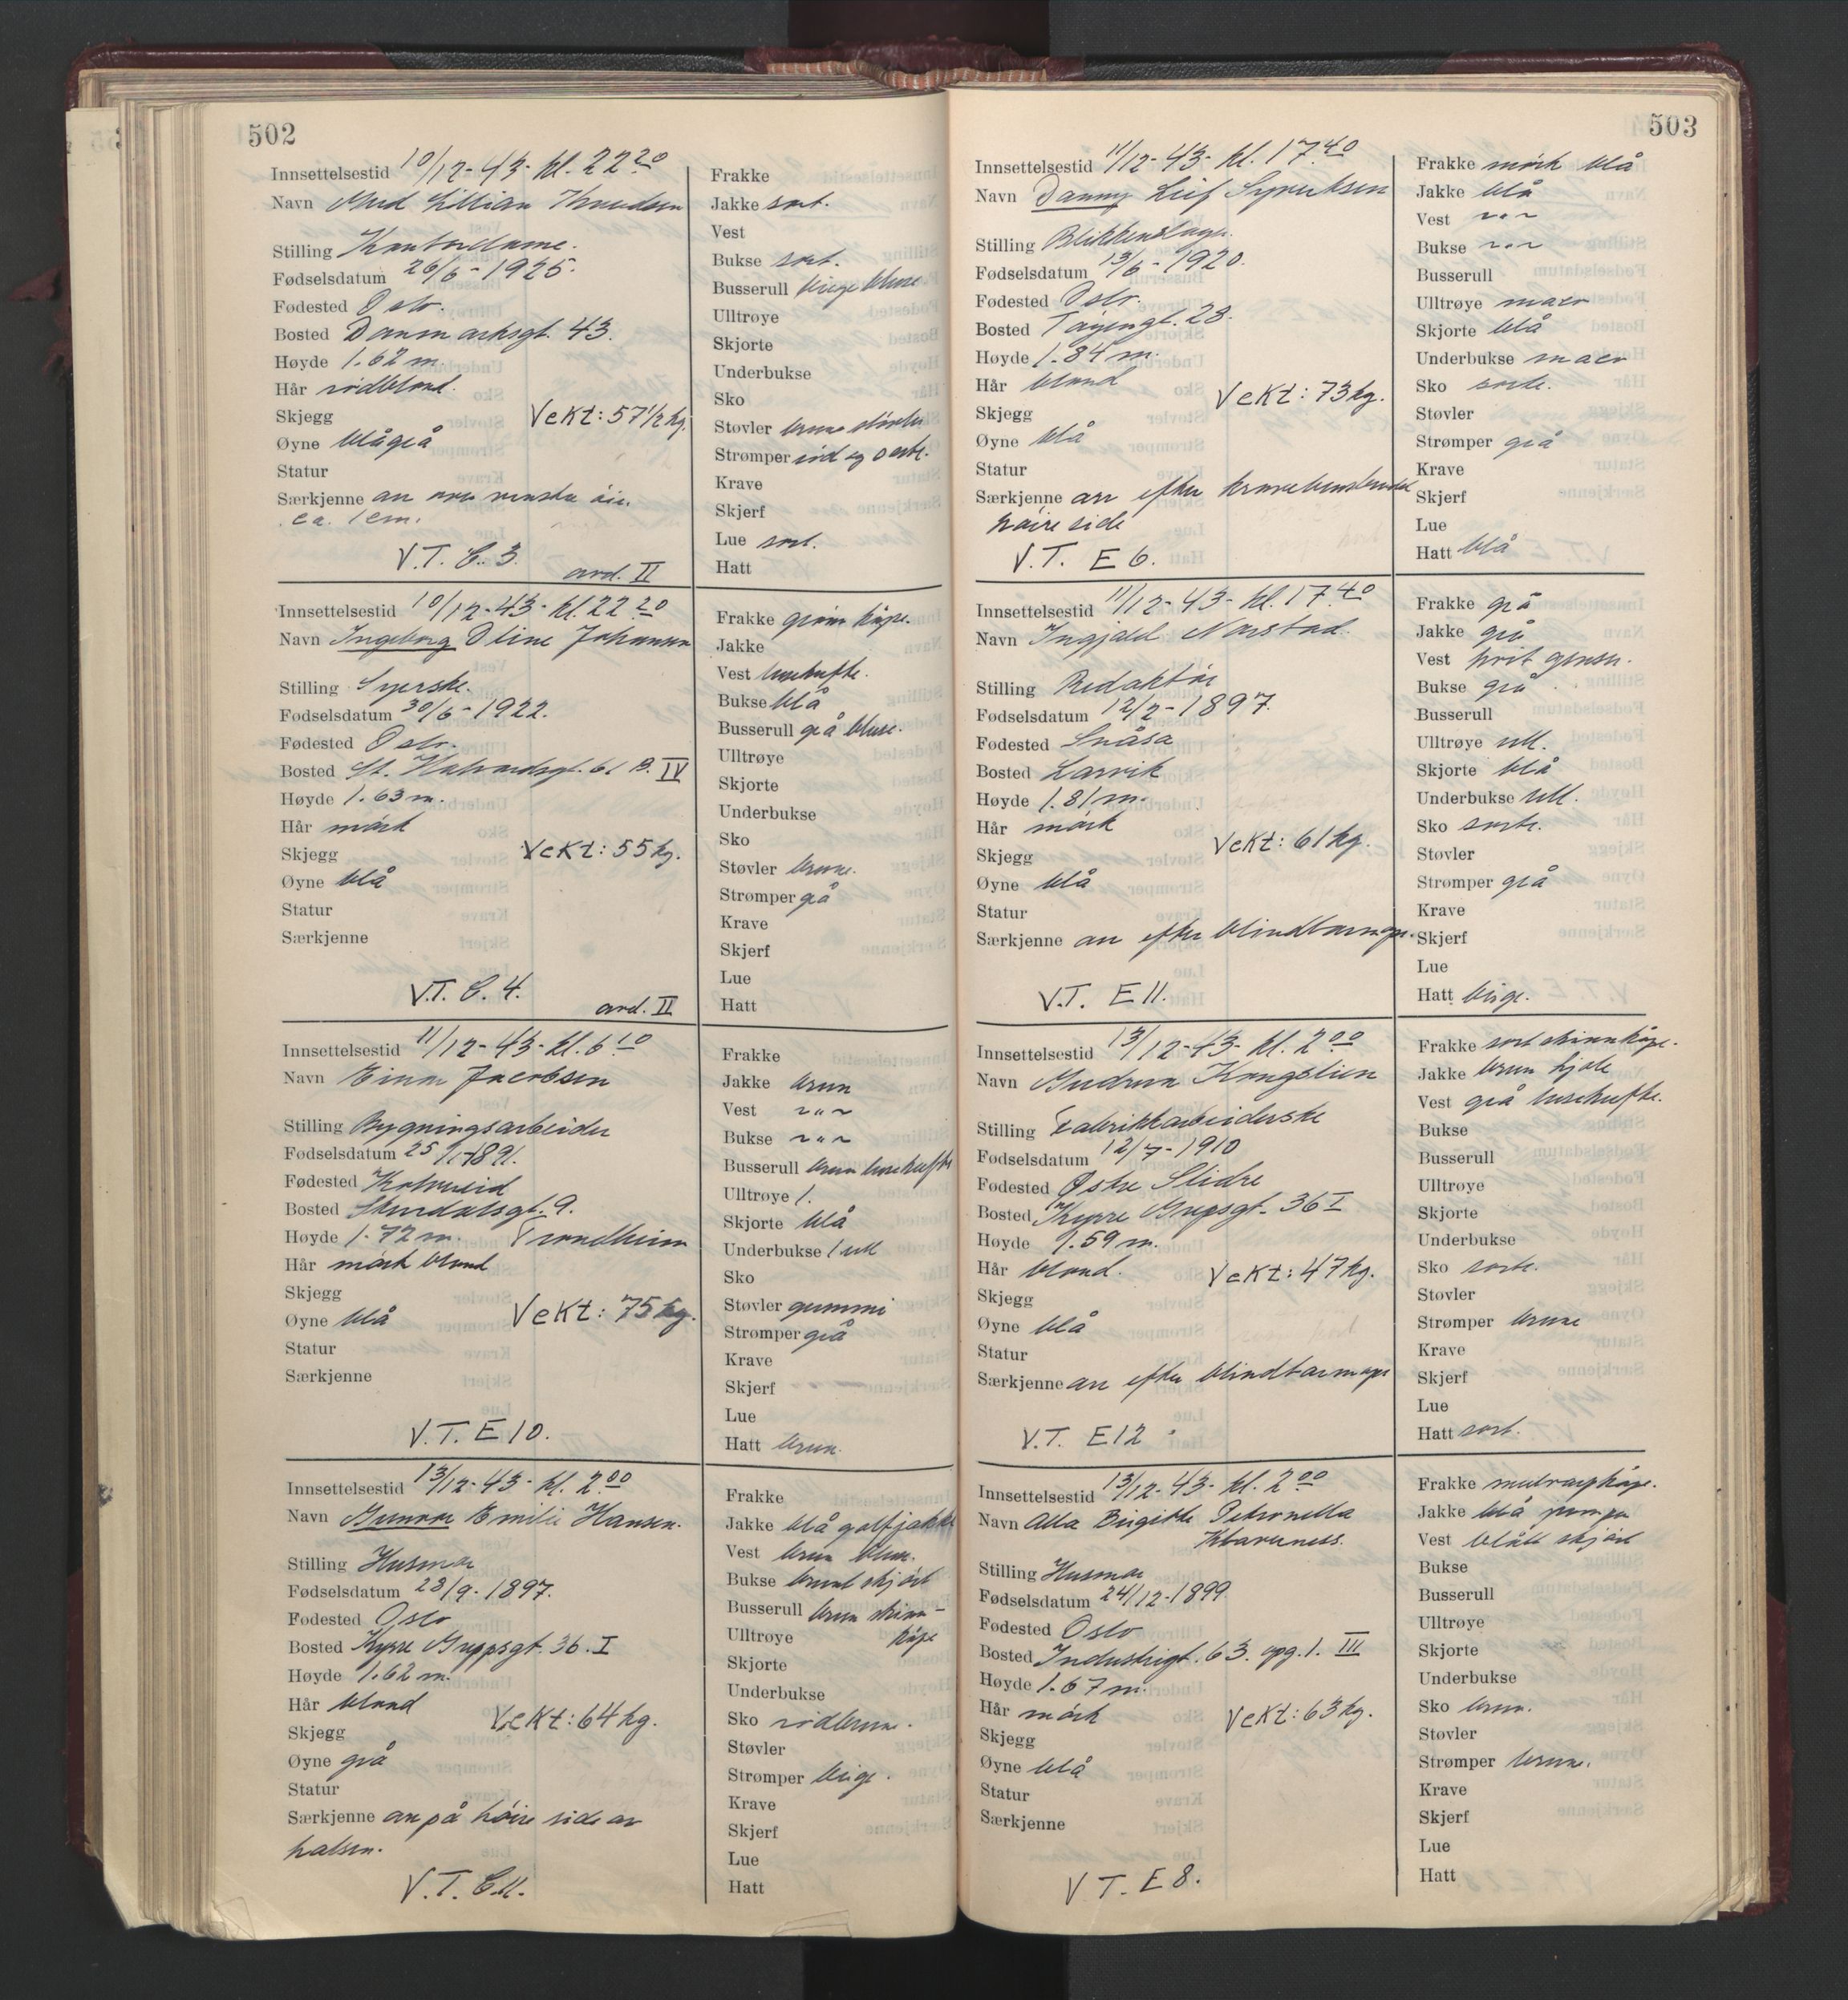 502
Innsettelsestid 10/12-43- kl. 22 20
Navn Lillian Knudsen
Stilling Kontordame.
Fødselsdatum 26/6-1925.
Fødested Oslo.
Bosted Danmarksgt. 43.
Høyde 1.62 m.
Hår rödblond.
Skjegg Vekt: 57 1/2 kg.
Øyne blågrå
Statur
Særkjenne arr over venstre öie.
ca. 1 cm.
V.T. C. 3. avd. II
Frakke
Jakke sort.
Vest
Bukse sort.
Busserull beige bluse
Ulltrøye
Skjorte
Underbukse
Sko
Støvler brune støvler
Strømper röd og sorte.
Krave
Skjerf
Lue sort.
Hatt
Innsettelsestid 10/12-43- kl. 22 20
Navn Ingeborg Oline Johansen
Stilling Syerske.
Fødselsdatum 30/6-1922.
Fødested Oslo.
Bosted St. Halvardsgt. 61 B. IV
Høyde 1.63 m.
Hår mörk
Skjegg Vekt: 55 kg.
Øyne blå
Statur
Særkjenne
V.T. C. 4. avd. II
Frakke grönn kåpe.
Jakke
Vest lusekufte.
Bukse blå
Busserull grå bluse.
Ulltrøye
Skjorte
Underbukse
Sko
Støvler brune.
Strømper grå
Krave
Skjerf
Lue
Hatt
Innsettelsestid 11/12-43- kl. 6 10
Navn Einar Jacobsen
Stilling Bygningsarbeider
Fødselsdatum 25/1-1891.
Fødested Kolvereid
Bosted Skurdalsgt. 9.
Høyde 1.72 m. Trondheim
Hår mörk blond
Skjegg
Øyne blå Vekt: 75 kg.
Statur
Særkjenne
V.T. E 10.
Frakke
Jakke brun
Vest ~"~
Bukse ~"~
Busserull brun lusekufte
Ulltrøye 1.
Skjorte blå
Underbukse 1 ull
Sko
Støvler gummi
Strømper grå
Krave
Skjerf
Lue
Hatt brun.
Innsettelsestid 13/12-43- kl. 2 00
Navn Gunvor Emilie Hansen.
Stilling Husmor
Fødselsdatum 28/9-1897.
Fødested Oslo
Bosted Kyrre Greppsgt. 36. I
Høyde 1.62 m.
Hår blond
Skjegg Vekt: 64 kg.
Øyne grå
Statur
Særkjenne arr på höire side av
halsen.
V.T. C. 11.
Frakke
Jakke blå golfjakke
Vest brun bluse.
Bukse brunt skjört
Busserull brun skinn-
Ulltrøye kåpe
Skjorte
Underbukse
Sko rödbrune.
Støvler
Strømper beige.
Krave
Skjerf
Lue
Hatt
503
Innsettelsestid 11/12-43- kl. 17 40
Navn Danny Leif Syvertsen
Stilling Blikkenslager.
Fødselsdatum 13/6-1920.
Fødested Oslo.
Bosted Töyengt. 28.
Høyde 1.84 m.
Hår blond
Skjegg Vekt: 73 kg.
Øyne blå
Statur
Særkjenne arr efter kravebensbrudd
höire side
V.T. E 6.
Frakke mörk blå
Jakke blå
Vest ~"~
Bukse ~"~
Busserull
Ulltrøye maco
Skjorte blå
Underbukse maco
Sko sorte.
Støvler
Strømper grå
Krave
Skjerf
Lue
Hatt blå
Innsettelsestid 11/12-43- kl. 17 40
Navn Ingjald Norstad.
Stilling Redaktör
Fødselsdatum 12/2-1897.
Fødested Snåsa
Bosted Larvik
Høyde 1.81 m.
Hår mörk
Skjegg Vekt: 61 kg.
Øyne blå
Statur
Særkjenne arr efter blindtarmop.
V.T. E 11.
Frakke grå
Jakke grå
Vest hvit genser.
Bukse grå
Busserull
Ulltrøye ull.
Skjorte blå
Underbukse ull.
Sko sorte.
Støvler
Strømper grå
Krave
Skjerf
Lue
Hatt beige.
Innsettelsestid 13/12-43- kl. 2 00
Navn Gudrun Kongslien
Stilling Fabrikkarbeiderske
Fødselsdatum 12/7-1910
Fødested Østre Slidre
Bosted Kyrre Greppsgt. 36 I
Høyde 1.59 m.
Hår blond.
Skjegg Vekt: 47 kg.
Øyne blå
Statur
Særkjenne arr efter blindtarmop
V.T. E 12
Frakke sort skinnkåpe.
Jakke brun kjole
Vest grå lusekufte.
Bukse
Busserull
Ulltrøye
Skjorte
Underbukse
Sko sorte.
Støvler
Strømper brune
Krave
Skjerf
Lue
Hatt sort.
Innsettelsestid 13/12-43- kl. 2 00
Navn Alla Birgitte Petronella
Klaveness.
Stilling Husmor
Fødselsdatum 24/12-1899
Fødested Oslo
Bosted Industrigt. 63. opg. 1. III
Høyde 1.67 m.
Hår mörk
Skjegg Vekt: 63 kg.
Øyne blå
Statur
Særkjenne
V.T. E 8.
Frakke
Jakke blå jumper
Vest blått skjört
Bukse
Busserull
Ulltrøye
Skjorte
Underbukse
Sko brun.
Støvler
Strømper brune.
Krave
Skjerf
Lue
Hatt